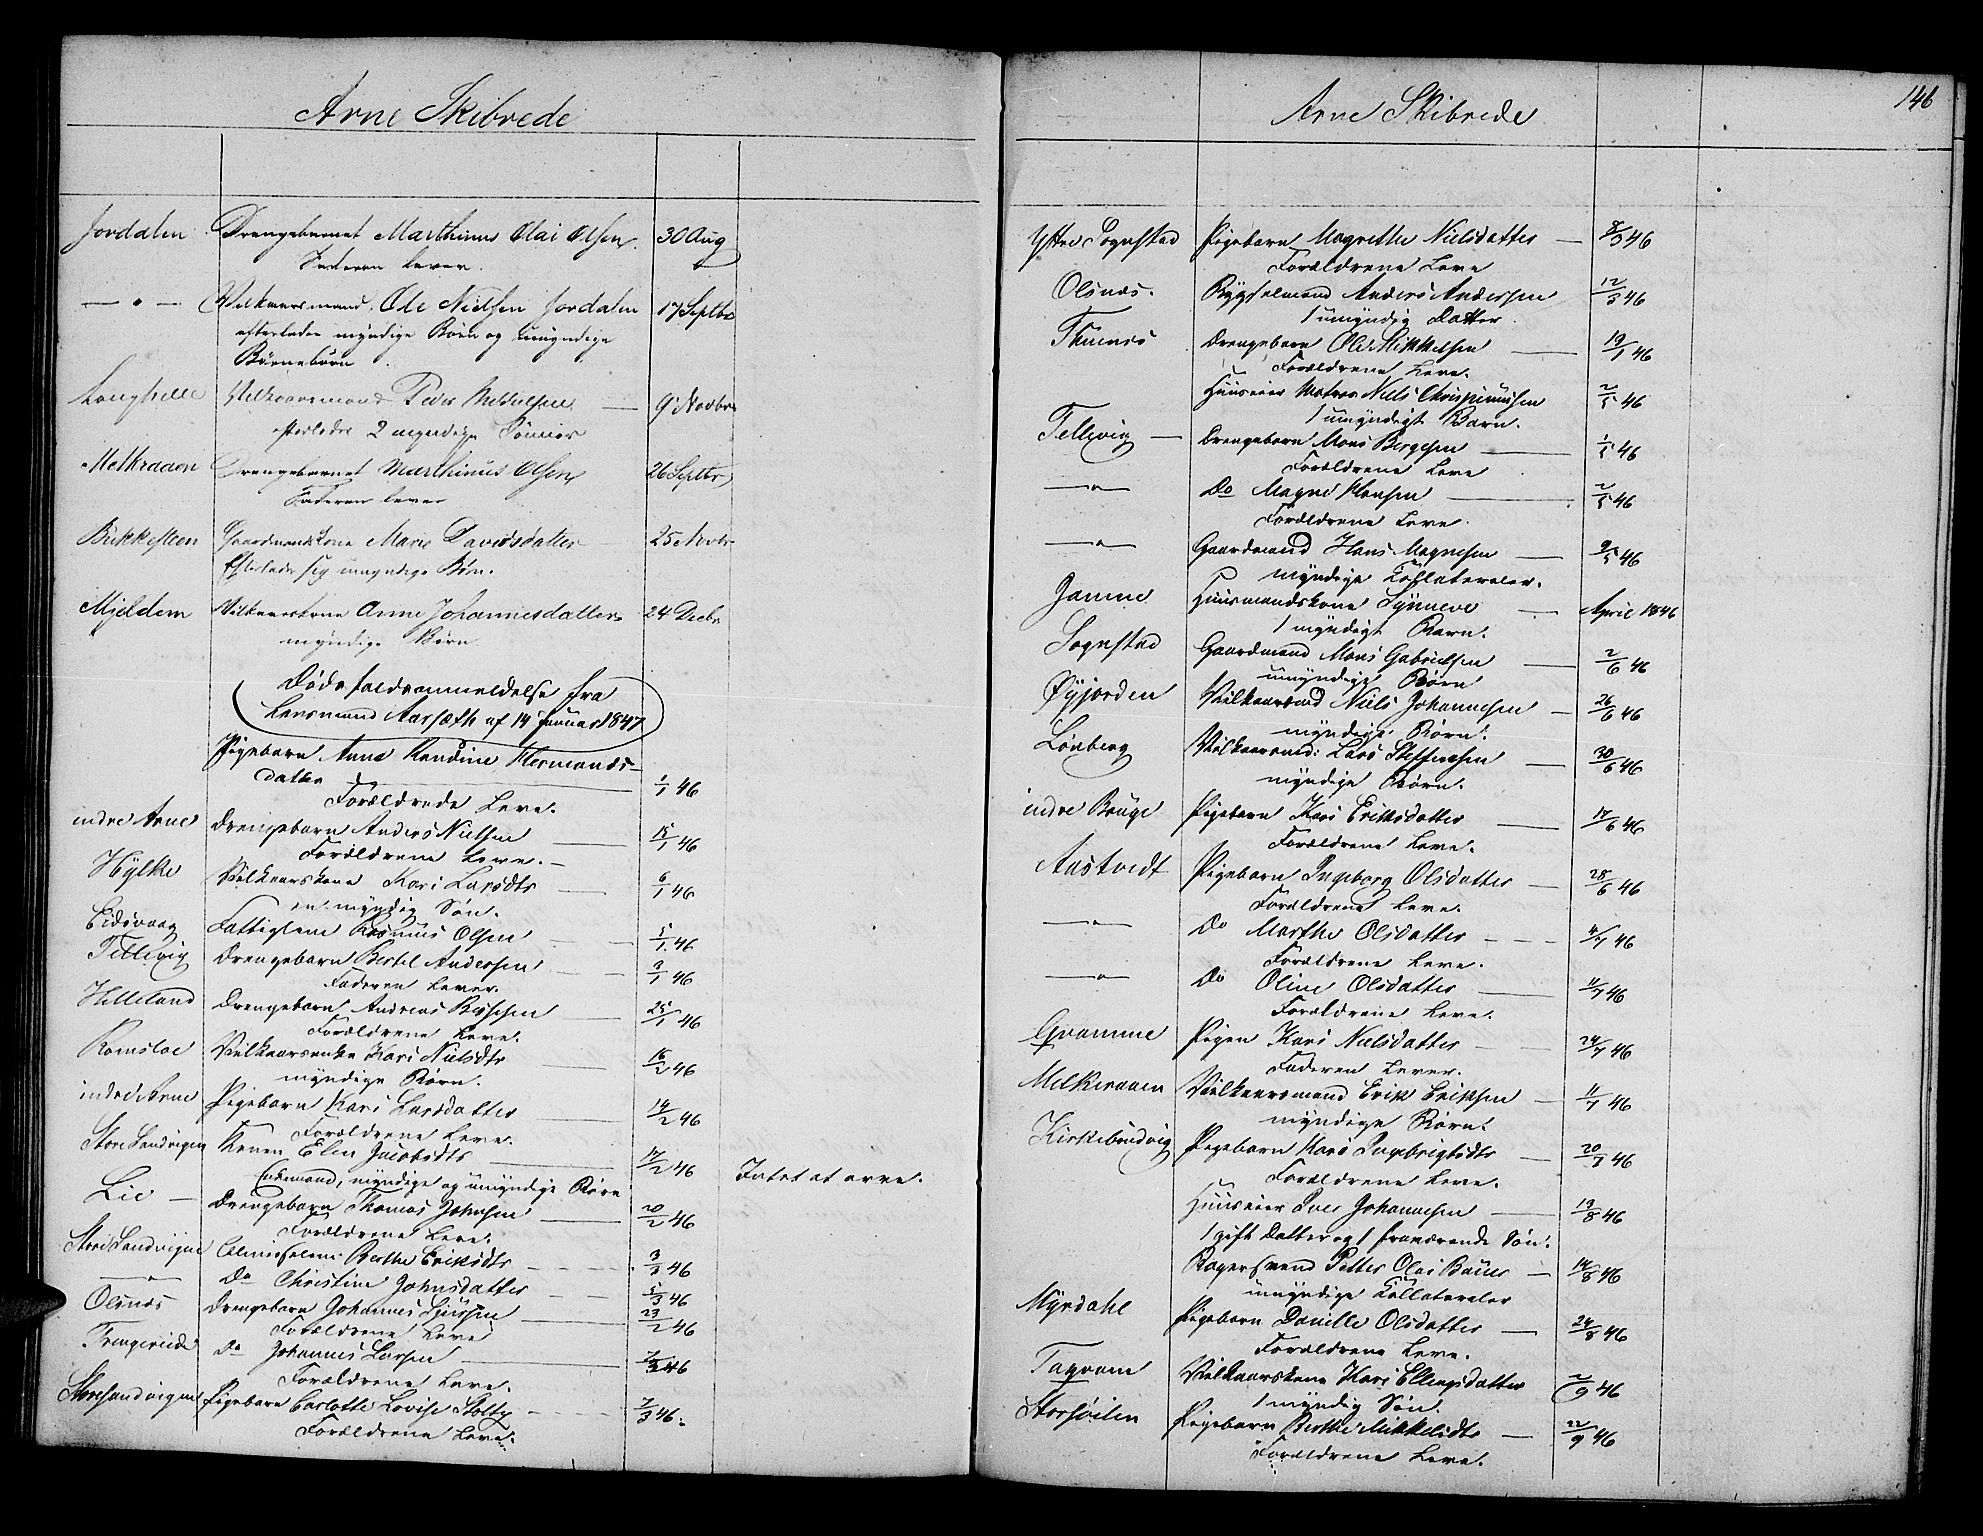 Arne Skibrede
Jordalen Drengebarnet Marthinus Olai Olsen 30 Aug
Faderen lever.
— " — Vilkaarsmand Ole Nielsen Jordalen 17 Septbr
efterlader myndige Børn og umyndige
Børnebørn
Langhelle Vilkaarsmand Peder 9 Novbr
efterlader 2 myndige Sønner
Melkraaen Drengebarnet Marthinus Olsen 26 Septbr
Faderen lever
Bukkesteen Gaardmandskone Marie Davidsdatter 25 Novbr
Efterlader sig umyndige Børn.
Mjeldem Vilkaarskone Anne Johannesdatter 24 Decbr
myndige Børn.
Dødsfaldsanmeldelse fra
Lensmand Aarsæth af 14 Januar 1847
Pigebarn Anne Hermands-
datter 1/1 46
Forældrede Leve.
indre Arne Drengebarn Anders Nielsen 15/1 46
Forældrene Leve.
Hylke Vilkaarskone Kari Larsdtr 6/1 46
en myndig Søn.
Eidsvaag Fattiglem Rasmus Olsen 5/1 46
Tellevig Drengebarn Bertel Andersen 2/1 46
Faderen Lever.
Helleland Drengebarn Andreas 25/1 46
Forældrene Leve.
Romsloe Vilkaarsenke Kari Nielsdtr 16/2 46
myndige Børn.
indre Arne Pigebarn Kari Larsdatter 14/2 46
Forældrene Leve.
Store Sandvigen Konen Elen Jacobsdtr 17/2 46 Intet at arve.
Enkemand, myndige og umyndige Børn
Lie — Drengebarn Thomas Johnsen 20/2 46
Forældrene Leve.
Store Sandvigen Berthe Eriksdtr 3/3 46
— " — Do Christine Johnsdatter 5/3 46
Olsnæs Drengebarn Johannes 23/2 46
Forældrene Leve
Do Johannes Larsen 46
Forældrene Leve.
Storesandvigen Pigebarn Carlotte Lovise Stolty 7/3 46.
Forældrene Leve.
146
Arne Skibrede
Yttre Sognstad Pigebarn Magrethe Nielsdatter 8/3 46
Forældrene Leve
Olsnæs. Anders Andersen 12/3 46
1 umyndig Datter
Thunæs Drengebarn Ole Mikkelsen 19/1 46
Forældrene Leve.
Huuseier Matros Niels 2/5 46
1 umyndigt Barn.
Tellevig — Drengebarn Mons Bergesen 1/5 46
Forældrene Leve
— " — Do Magne Hansen 2/5 46
Forældrene Leve.
— " — Gaardmand Hans Magnesen 9/5 46
myndige Collateraler.
Gamme Huusmandskone Synneve April 1846
1 myndigt Barn.
Sognstad Gaardmand Mons Gabrielsen 2/6 46
umyndige Børn
Øyjorden Vilkaarsmd Niels Johannesen 26/6 46
myndige Børn.
Lønberg Vilkaarsmd: Lars Steffensen 30/6 46
myndige Børn.
indre Bruge Pigebarn Kari Eriksdatter 17/6 46
Forældrene Leve.
Aastvedt Pigebarn Ingeborg Olsdatter 28/6 46
Forældrene Leve.
— " — Do Marthe Olsdatter 4/7 46
Forældrene Leve.
— " — Do Oline Olsdatter 11/7 46
Forældrene Leve.
Qvamme Pigen Kari Nielsdatter 24/7 46
Faderen Lever.
Melkeraaen Vilkaarsmand Erik Eriksen 11/7 46
myndige Børn.
Kirkebrudvig Pigebarn Kari Ingebrigtsdtr 20/7 46
Forældrene Leve.
Huuseier Iver Johannesen 13/8 46
1 gift Datter og 1 fraværende Søn.
Bagersvend Petter Olai Bauer 14/8 46
umyndige Collateraler
Myrdahl Pigebarn Danille Olsdatter 24/8 46
Forældrene Leve.
Taqvam Vilkaarskone Kari Ellingsdatter 2/9 46
1 myndig Søn.
Storsøilen Pigebarn Berthe Mikkelsdtr 22/9 46
Forældrene Leve.